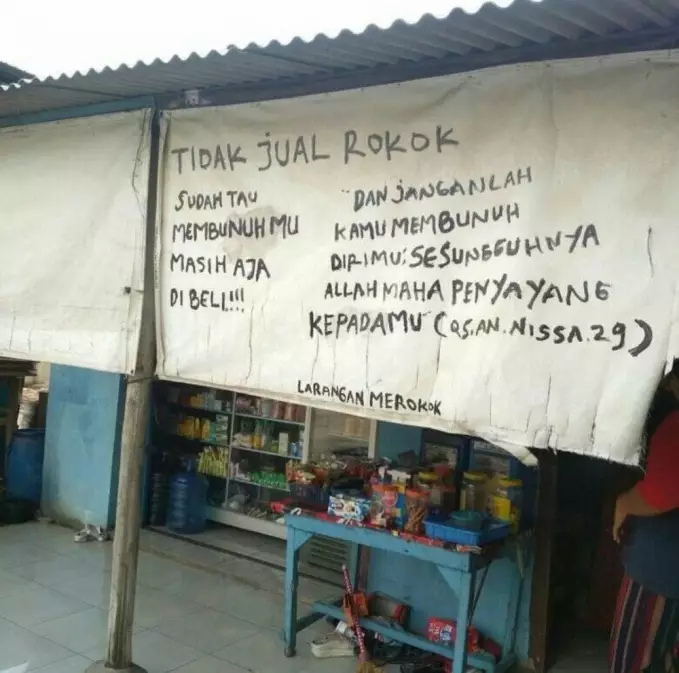 TIDAK JUAL ROKOK
SUDAH TAU
MEMBUNUHMU
MASIH AJA
DI BELI!!!
"DAN JANGANLAH
KAMU MEMBUNUH
DIRIMU: SESUNGGUHNYA
ALLAH MAHA PENYAYANG
KEPADAMU" (QS.AN.NISSA.29)
LARANGAN MEROKOK